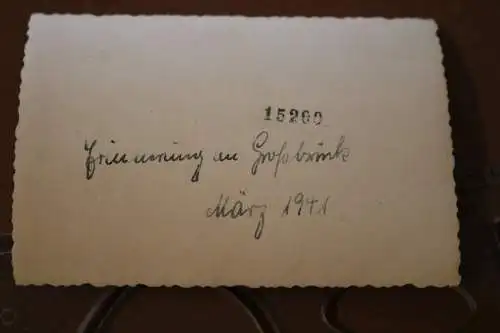 15200
Erinnerung an Großbrück
März 1941